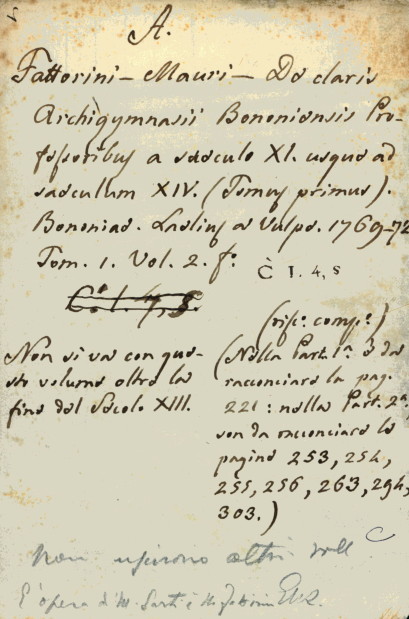 A.
Fattorini — Mauri — De claris
Archigymnasii Bononiensis Pro-
fessoribus a saeculo XI. usque ad
saeculum XIV. (Tomus primus).
Bononiae. Laelius a Vulpe. 1769-72
Tom. 1. Vol. 2. fo.
C I. 4, 5
(risc. comp.)
Non si va con que-
sto volume oltre la
fine del Secolo XIII.
(Nella Part. 1a 3 da
racconciare la pag.
221: nella Part. 2a,
son da racconciare le
pagine 253, 254,
255, 256, 263, 294,
303.)
Non uscirono altri voll.
L'opera è di M. Sarti e M. Fattorini